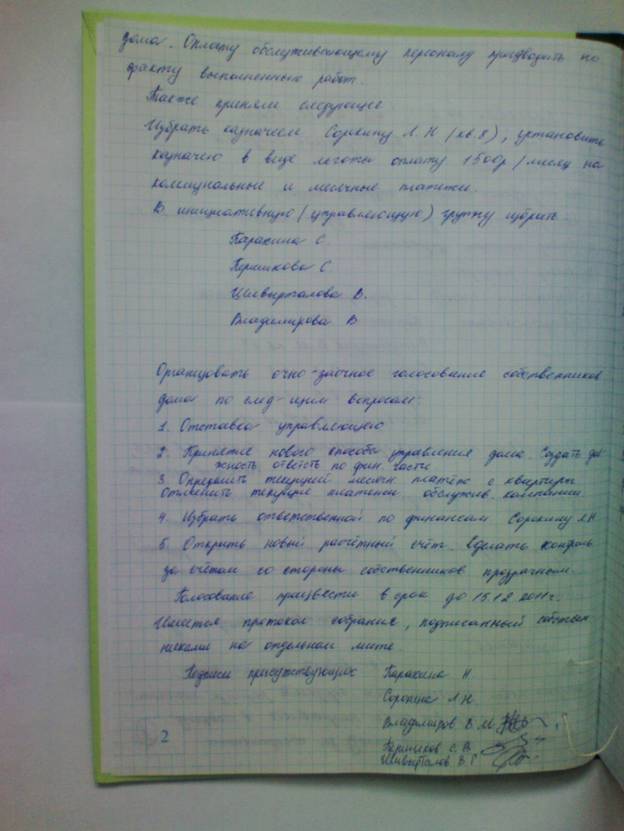 дома. Оплату обслуживающему персоналу производить по
факту выполненных работ.
Также приняли следующее
Избрать казначеем Сорокину Л.Н (кв.8), установить
казначею в виде льготы оплату 1500р/месяц на
коммунальные и месячные платежи.
В инициативную (управляющую) группу избрать
Каракина С.
Паршикова С
Шевырталова В.
Владимирова В
Организовать очно-заочное голосование собственников
дома по след-ющим вопросам
1. Отставка управляющего
2. Принятие нового способа управления дома. Создать дол
жность ответств по фин. части
3. Определить текущий месячн. платёж с квартиры
отменить текущие платежи обслужив. компании
4. Избрать ответственной по финансам Сорокину ЛН
5. Открыть новый расчётный счёт. Сделать контроль
за счётом со стороны собственников прозрачным.
Голосование произвести в срок до 15.12 2011г.
Имеется протокол собрания, подписанный собствен
никами на отдельном листе
Подписи присутствующих Каракина Н
Сорокина Л.Н.
Владимиров В.М.
Паршиков С.В.
Шевырталов В.Г
2